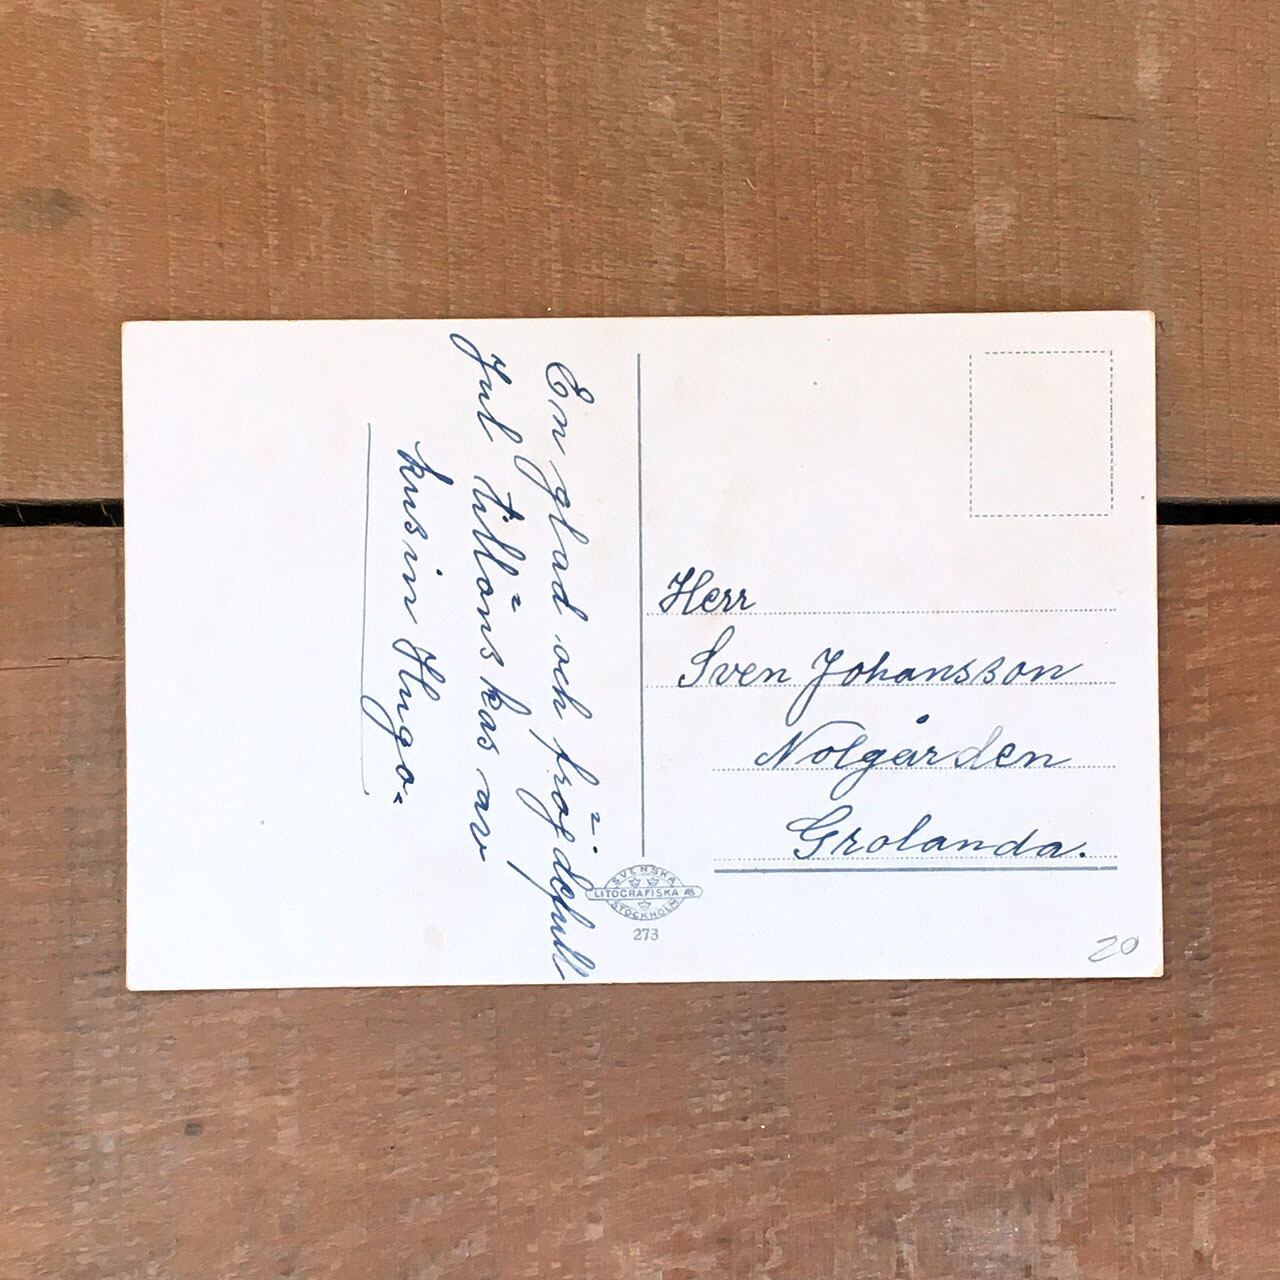 En glad och fröjdefull
Jul tillönskas av
kusin Hugo.
Herr
Sven Johansson
Nolgården
Grolanda.
SVENSKA
LITOGRAFISKA AB
STOCKHOLM
273
20